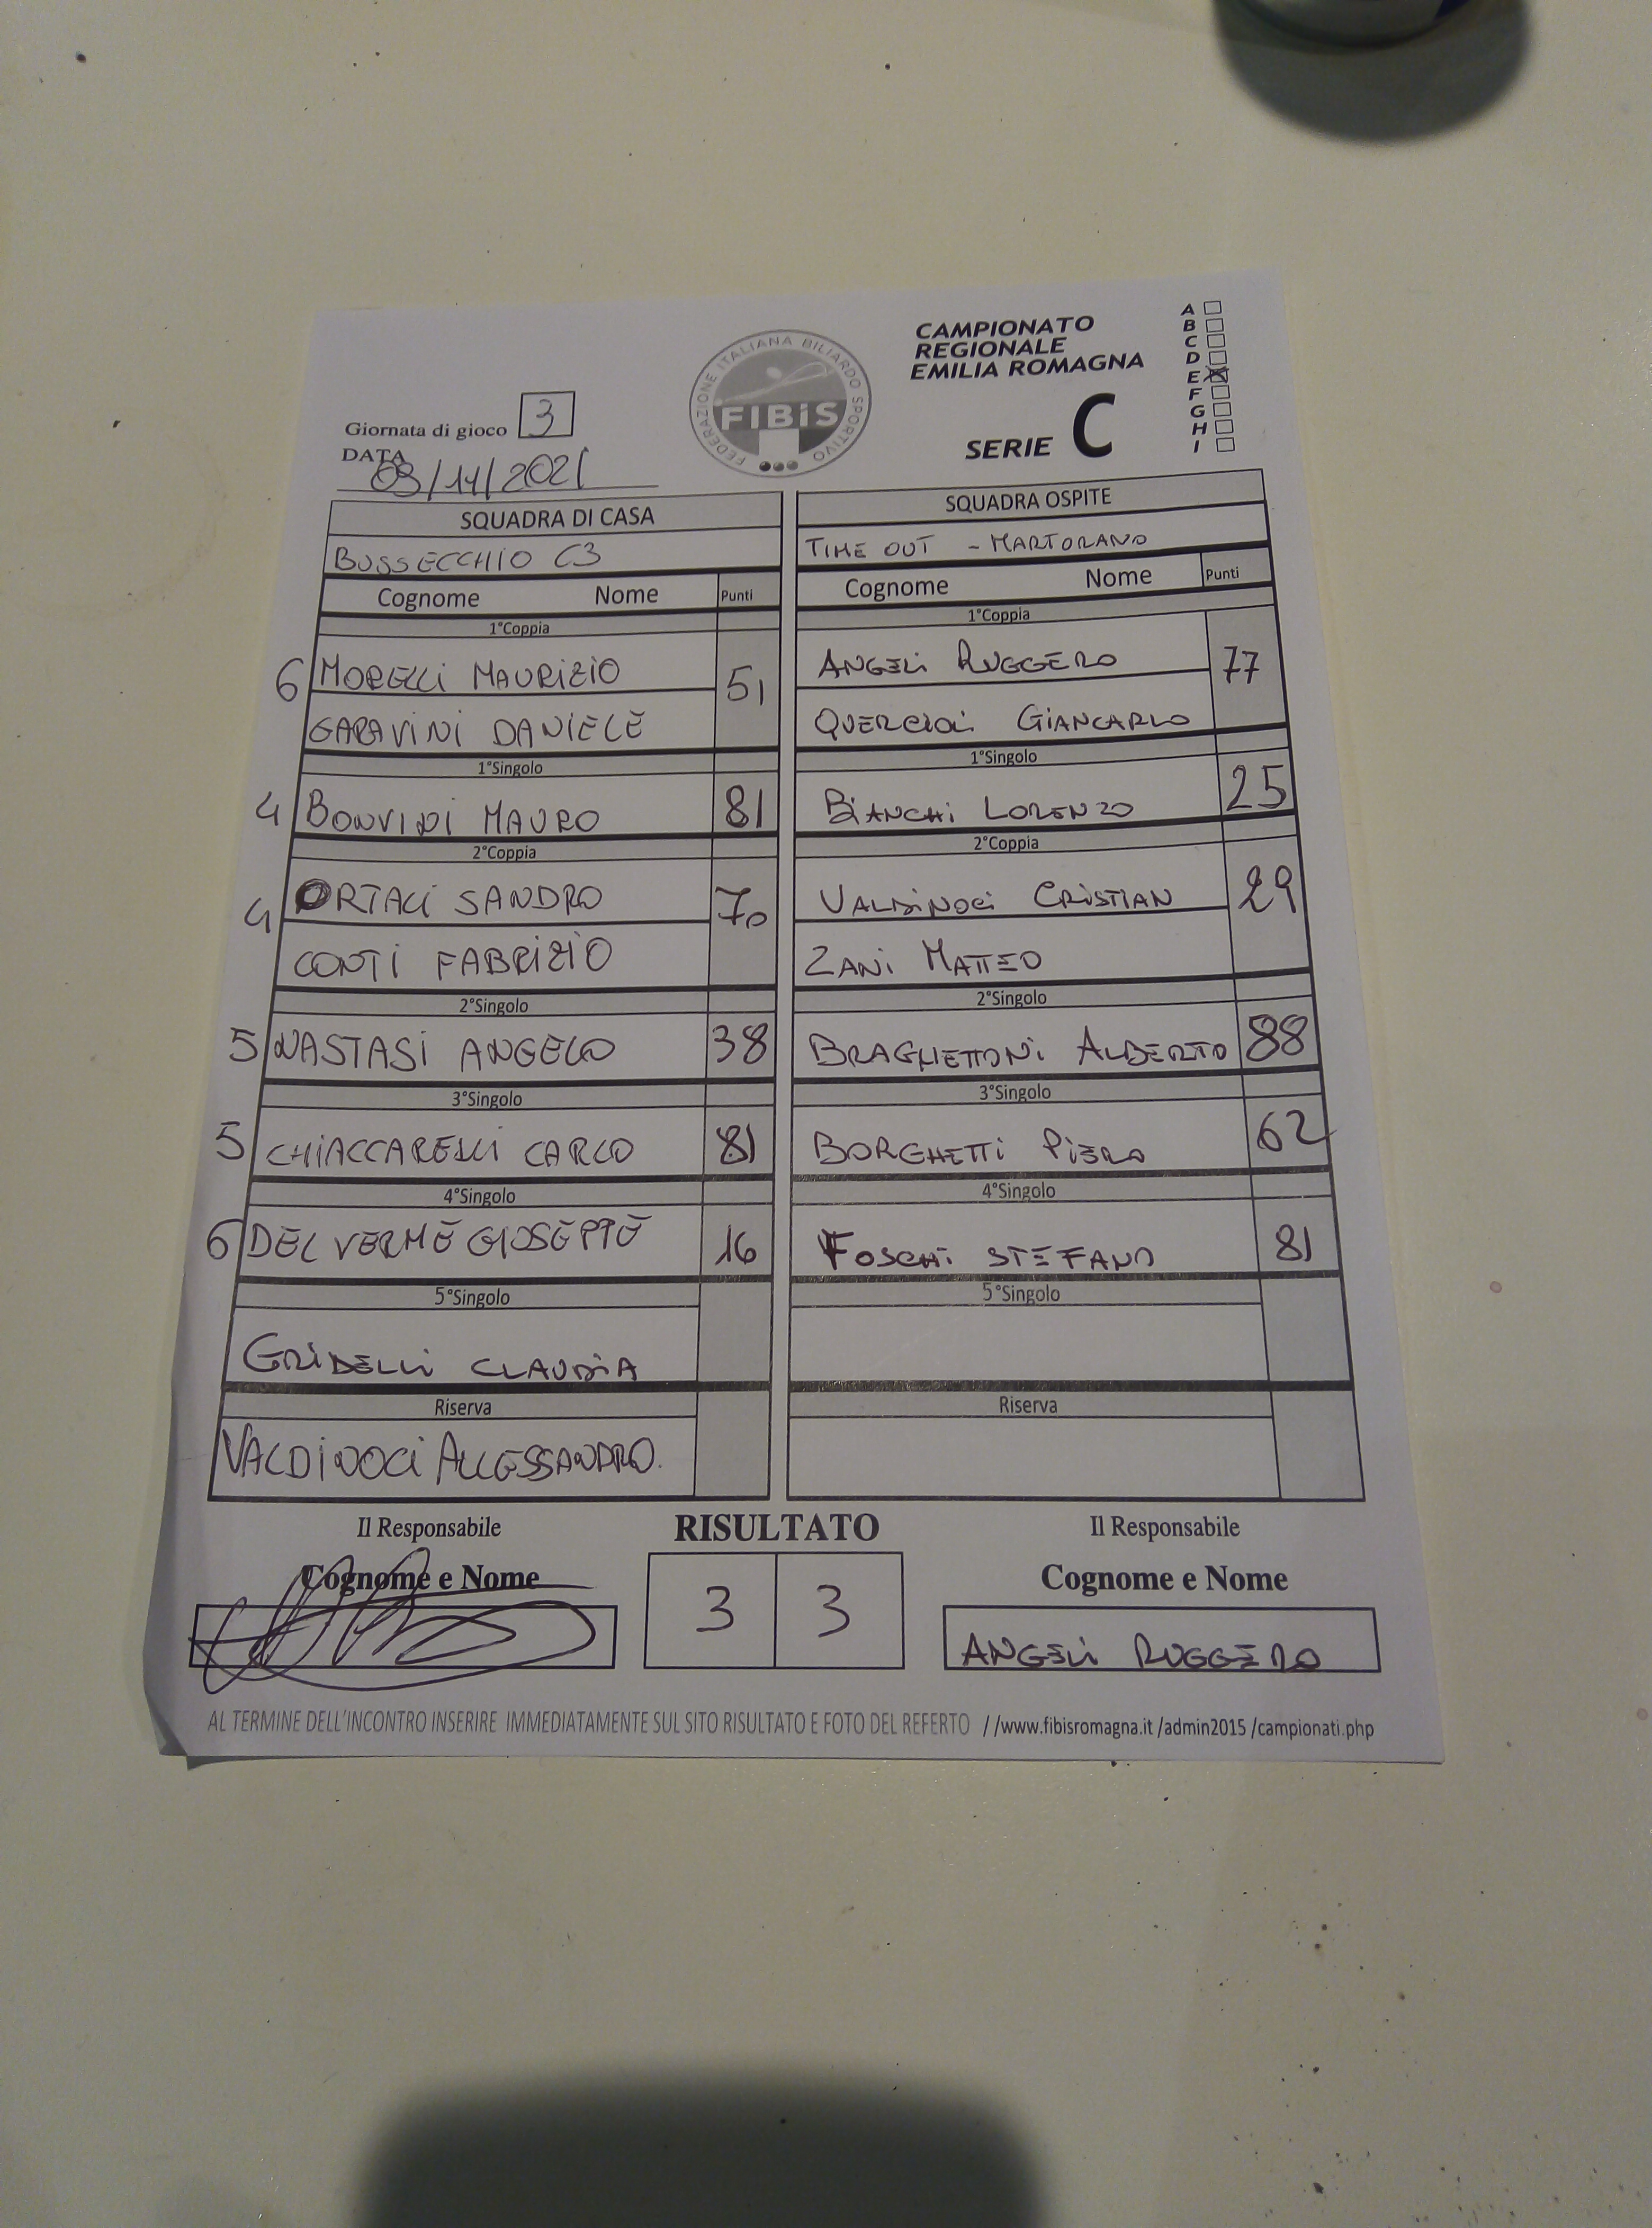 CAMPIONATO
REGIONALE
EMILIA ROMAGNA
SERIE C
A
B
C
D
E
F
G
H
I
FEDERAZIONE ITALIANA BILIARDO SPORTIVO
FIBiS
Giornata di gioco 3
DATA 03/11/2021
SQUADRA DI CASA
BUSSECCHIO C3
Cognome Nome Punti
1°Coppia
6 MORELLI MAURIZIO 51
GARAVINI DANIELE
1°Singolo
4 BONVINI MAURO 81
2°Coppia
4 ORTALI SANDRO 70
CONTI FABRIZIO
2°Singolo
5 NASTASI ANGELO 38
3°Singolo
5 CHIACCARELLI CARLO 81
4°Singolo
6 DEL VERME GIOSEPPE 16
5°Singolo
GRIDELLI CLAUDIA
Riserva
VALDINOCI ALLESSANDRO.
SQUADRA OSPITE
TIME OUT - MARTORANO
Cognome Nome Punti
1°Coppia
ANGELI RUGGERO 77
QUERCIOLI GIANCARLO
1°Singolo
BIANCHI LORENZO 25
2°Coppia
VALDINOCI CRISTIAN 29
ZANI MATTEO
2°Singolo
BRAGHETTONI ALBERTO 88
3°Singolo
BORGHETTI PIERO 62
4°Singolo
FOSCHI STEFANO 81
5°Singolo
Riserva
Il Responsabile
Cognome e Nome
RISULTATO
3 3
Il Responsabile
Cognome e Nome
ANGELI RUGGERO
AL TERMINE DELL'INCONTRO INSERIRE IMMEDIATAMENTE SUL SITO RISULTATO E FOTO DEL REFERTO //www.fibisromagna.it /admin2015 /campionati.php